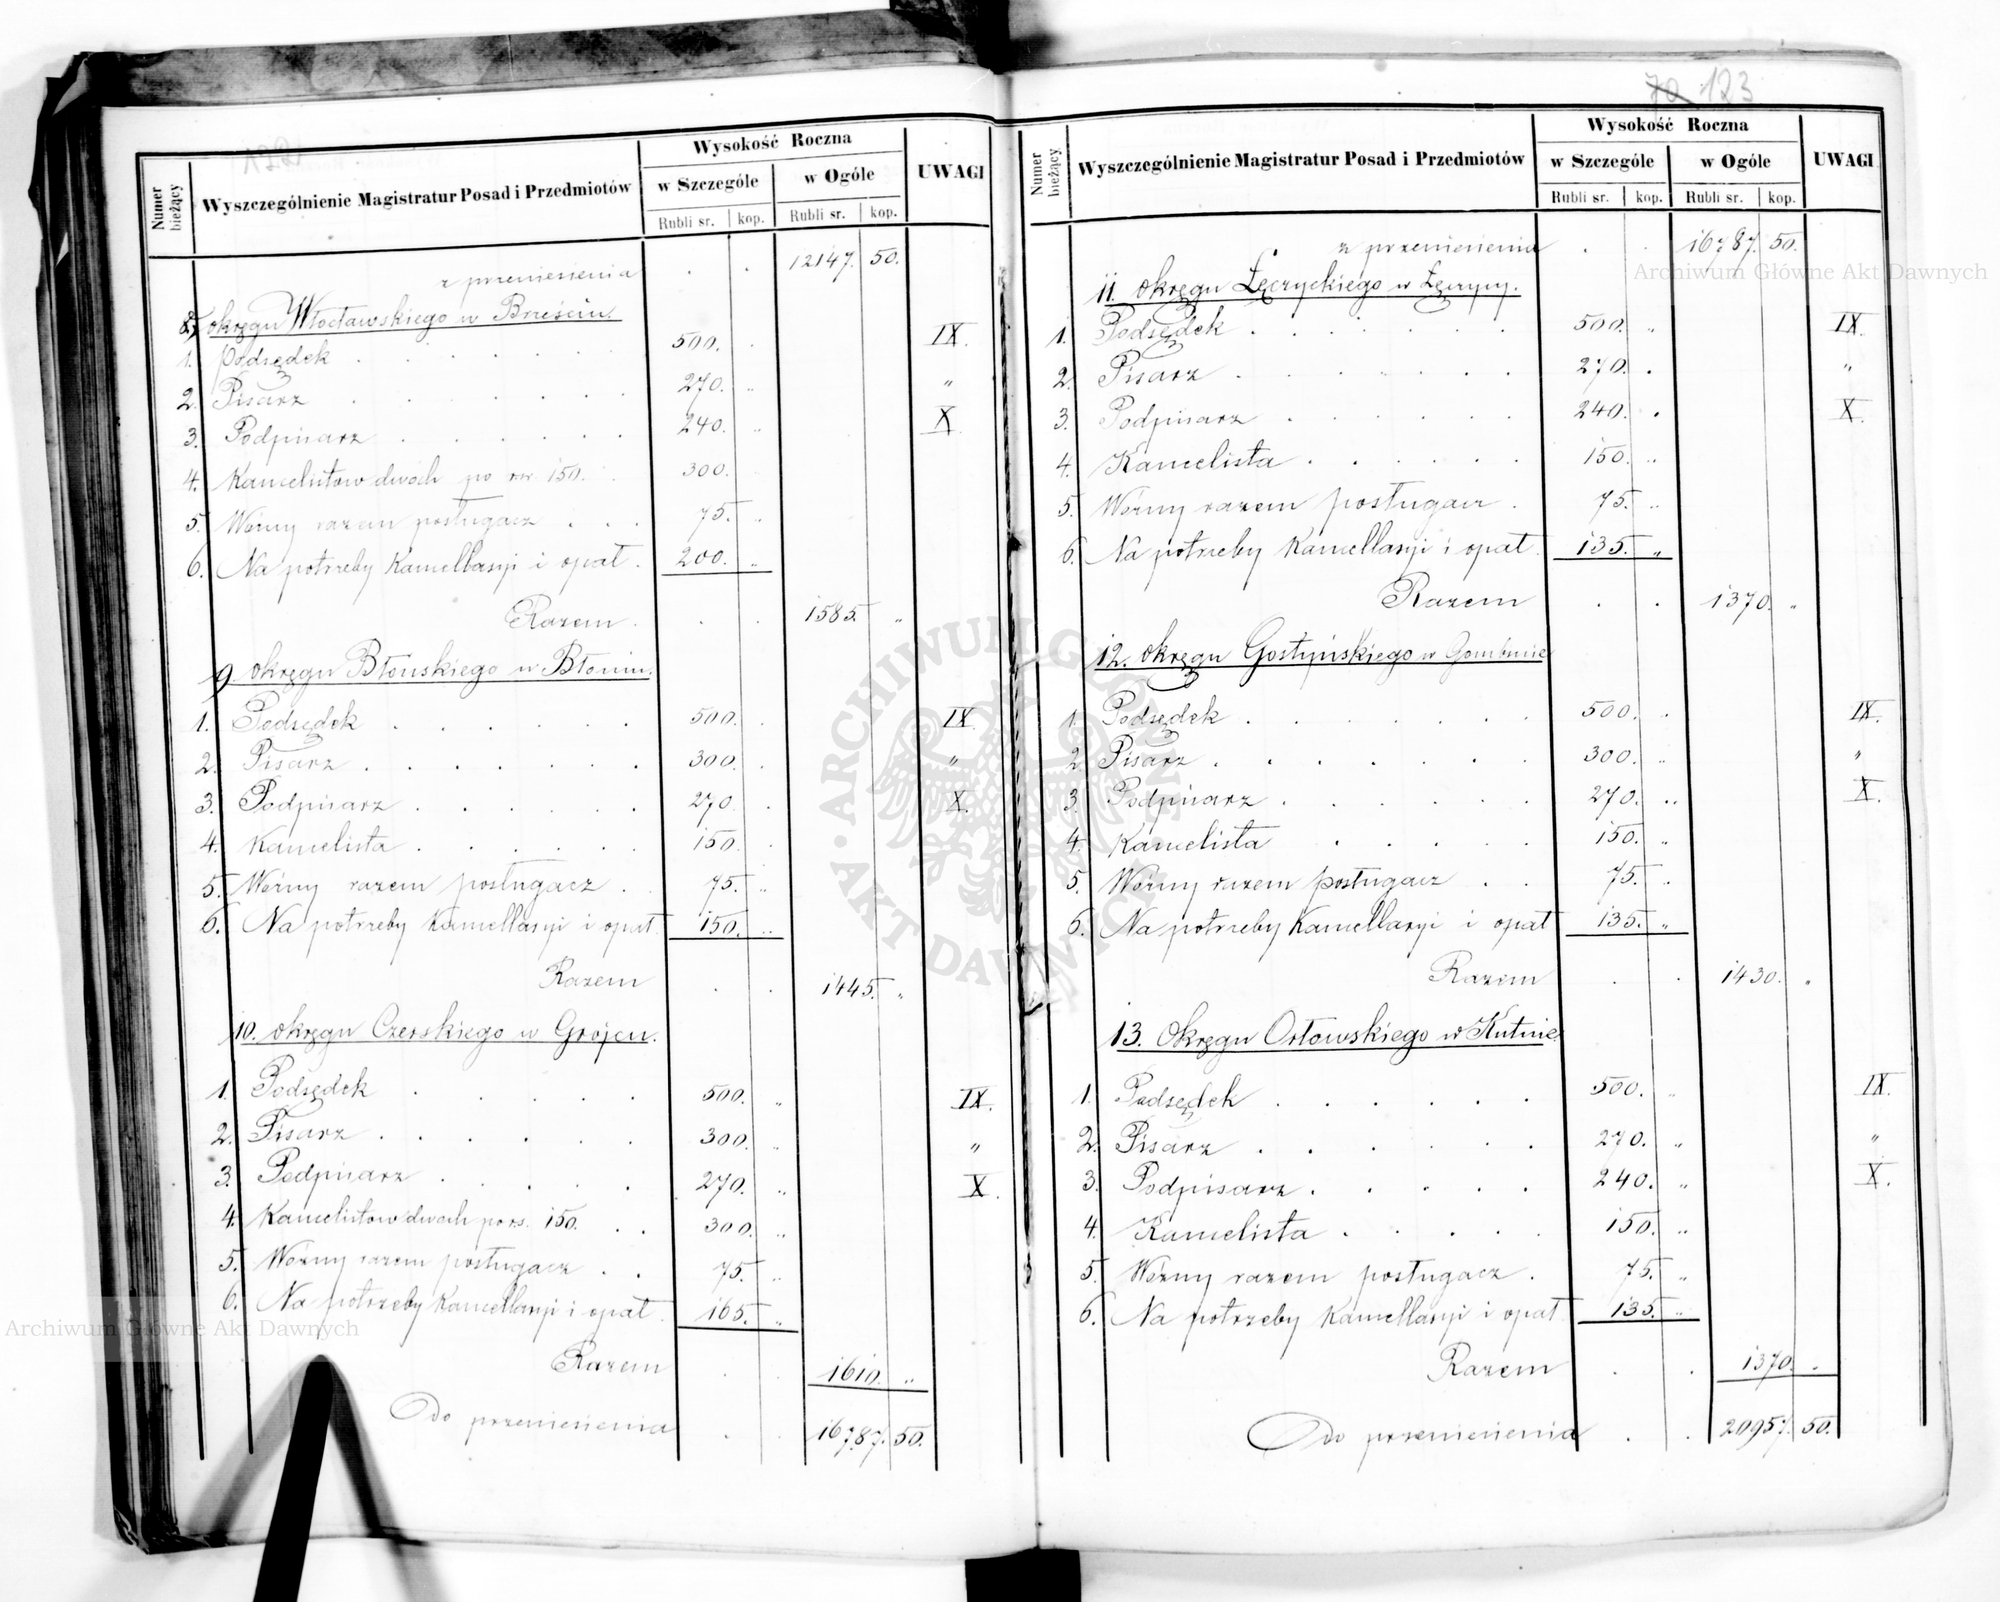 Numer bieżący
Wyszczególnienie Magistratur Posad i Przedmiotów
Wysokość Roczna
w Szczególe
w Ogóle
UWAGI
Rubli sr. kop. Rubli sr. kop.
z przeniesienia . . 12147. 50.
8, okręgu Włocławskiego w Brześciu.
1. Podsędek . . . . . . 500. . IX.
2. Pisarz . . . . . . 270. „ „
3. Podpisarz . . . . . 240. „ X.
4. Kancelistów dwóch po rsr. 150. . 300.
5. Woźny razem posługacz . . . 75. „
6. Na potrzeby Kancellaryi i opał . 200. „
Razem . . . 1585. „
9 okręgu Błońskiego w Błoniu.
1. Podsędek . . . . . 500. . IX.
2. Pisarz . . . . . . 300. . „
3. Podpisarz . . . . . 270. . X.
4. Kancelista . . . . . 150. .
5. Woźny razem posługacz . . 75. „
6. Na potrzeby Kancellaryi i opał. 150. „
Razem . . 1445. „
10. okręgu Czerskiego w Grójcu.
1. Podsędek . . . . . 500. „ IX.
2. Pisarz . . . . . . 300. „ „
3. Podpisarz . . . . . 270. „ X.
4. Kancelistów dwóch po rs. 150. . . 300. „
5. Woźny razem posługacz . . 75. „
6. Na potrzeby Kancellaryi i opał. 165. „
Razem . . 1610. „
Do przeniesienia . . 16787. 50.
70 123
Numer bieżący
Wyszczególnienie Magistratur Posad i Przedmiotów
Wysokość Roczna
w Szczególe
w Ogóle
UWAGI
Rubli sr. kop. Rubli sr. kop.
z przeniesienia . . 16787. 50.
11. okręgu Łęczyckiego w Łęczycy.
1. Podsędek . . . . . . 500. „ IX.
2. Pisarz . . . . . . 270. . „
3. Podpisarz . . . . . 240. . X.
4. Kancelista . . . . . 150. „
5. Woźny razem posługacz . 75. „
6. Na potrzeby Kancellaryi i opał. 135. „
Razem . . 1370. „
12. okręgu Gostyńskiego w Gombinie
1. Podsędek . . . . . . 500. . IX.
2. Pisarz . . . . . . . 300. „ „
3. Podpisarz . . . . . 270. „ X.
4. Kancelista . . . . . 150. „
5. Woźny razem posługacz . . 75. „
6. Na potrzeby Kancellaryi i opał 135. „
Razem . . 1430. „
13. Okręgu Orłowskiego w Kutnie.
1. Podsędek . . . . . . 500. „ IX.
2. Pisarz . . . . . . 270. „ „
3. Podpisarz . . . . . 240. „ X.
4. Kancelista . . . . . 150. „
5. Woźny razem posługacz . 75. „
6. Na potrzeby Kancellaryi i opał. 135. „
Razem . . 1370. „
Do przeniesienia . . 20957. 50.
Archiwum Główne Akt Dawnych
Archiwum Główne Akt Dawnych
ARCHIWUM GŁÓWNE AKT DAWNYCH